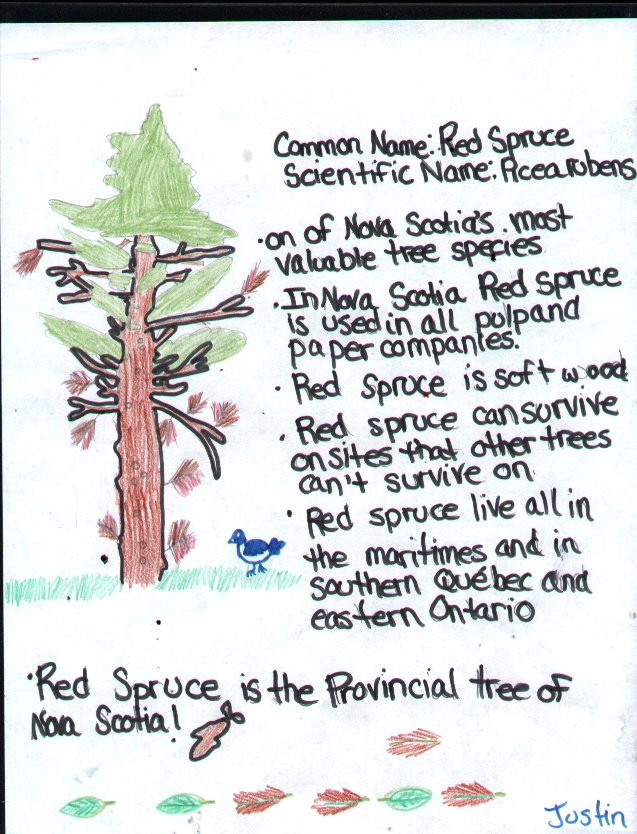 Common Name: Red Spruce
Scientific Name: Picea rubens
• on of Nova Scotia's most
valuable tree species
• In Nova Scotia Red spruce
is used in all pulp and
paper companies.
• Red spruce is soft wood
• Red spruce can survive
on sites that other trees
can't survive on
• Red spruce live all in
the maritimes and in
southern Québec and
eastern Ontario
• Red Spruce is the Provincial tree of
Nova Scotia!
Justin